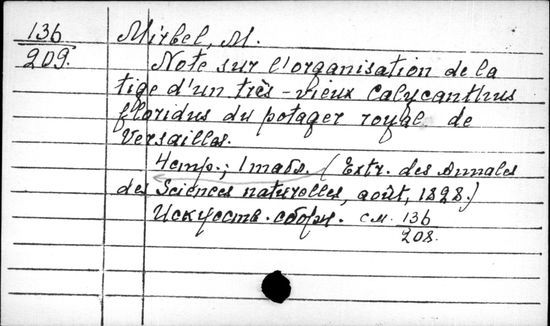 136 Mirbel, M.
209. Note sur l'organisation de la
tige d'un très-vieux Calycanthus
floridus du potager royal de
Versailles.
4 стр.; 1 табл. (Extr. des Annales
des Sciences naturelles, août, 1828.)
Искусств. сборн. см. 136
208.